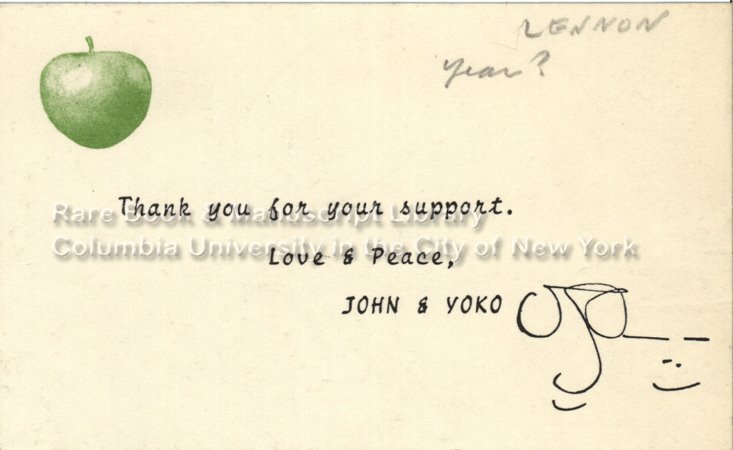 LENNON
year?
Thank you for your support.
Rare Book & Manuscript Library
Columbia University in the City of New York
Love & Peace,
JOHN & YOKO